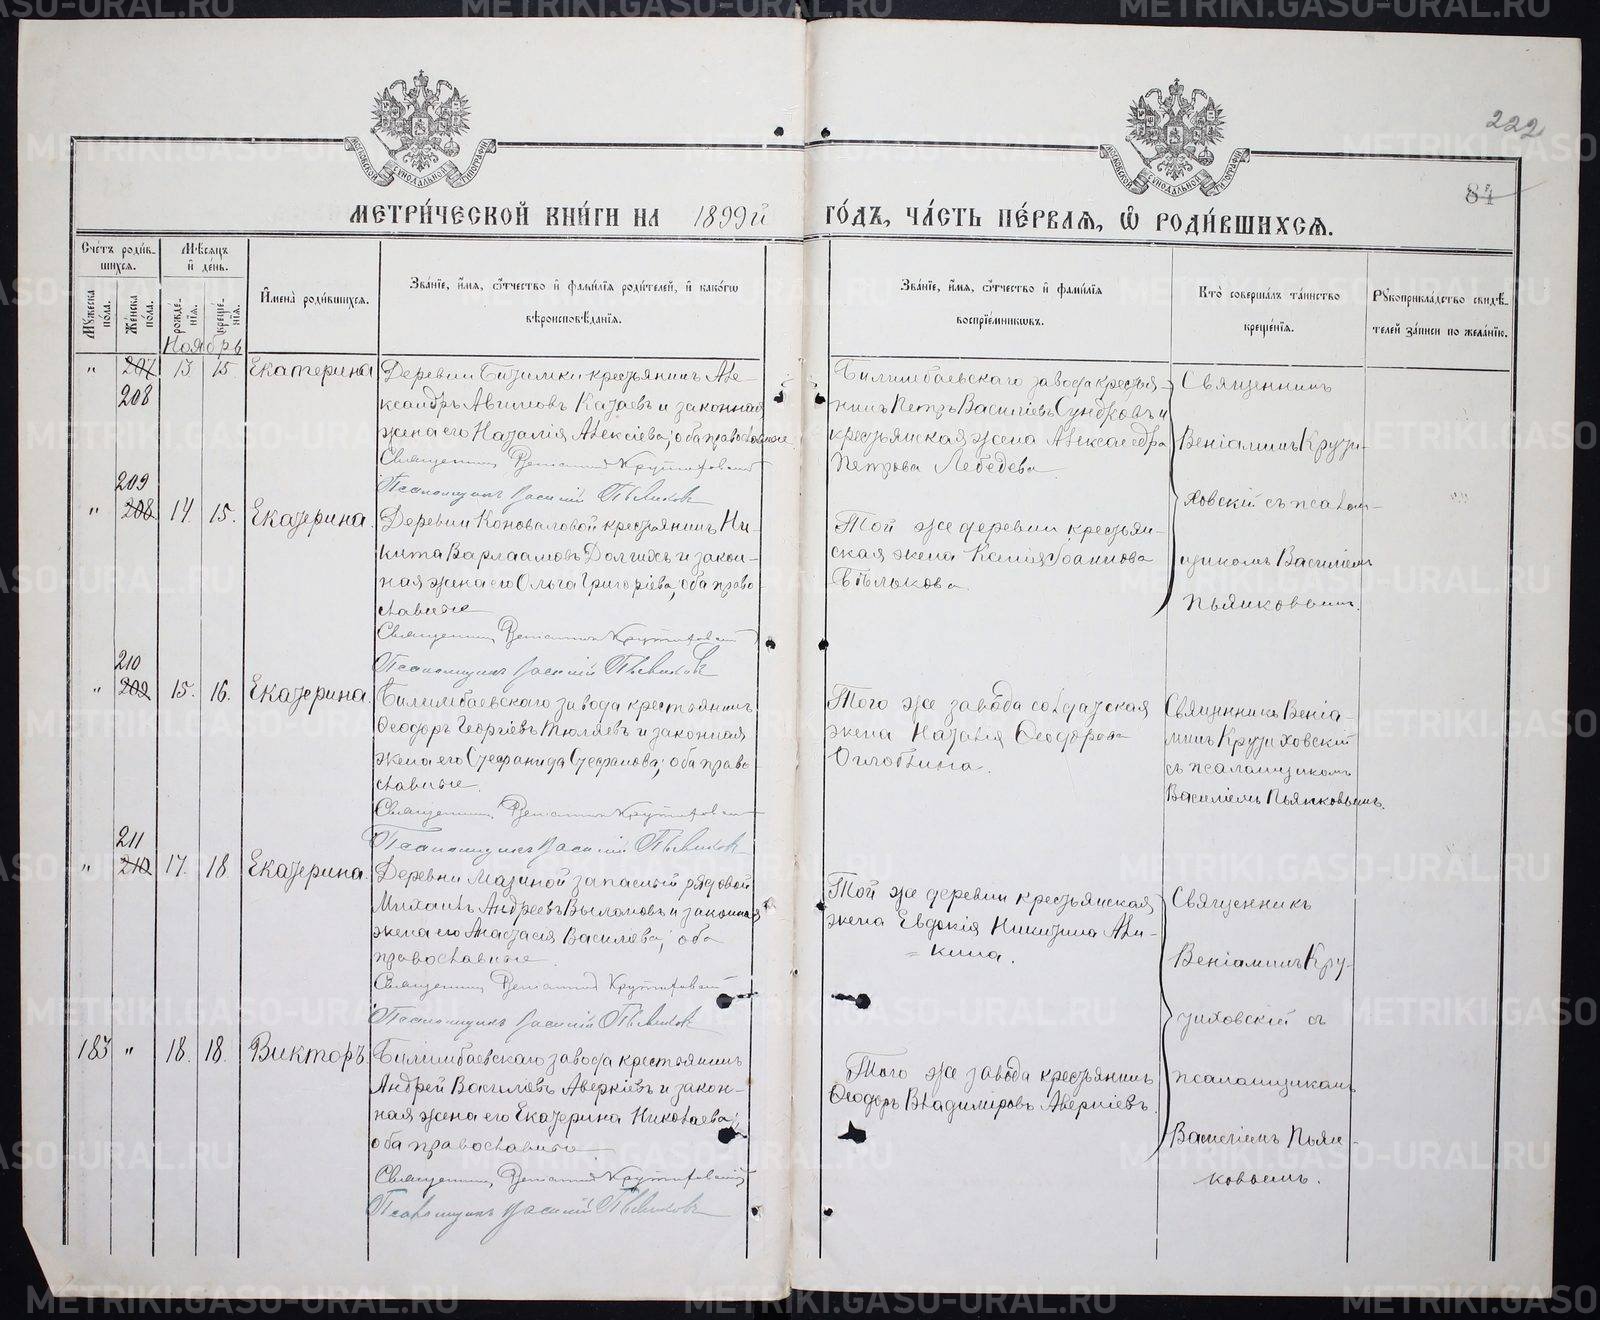 222
84
МЕТРИ́ЧЕСКОЙ КНИ́ГИ НА 1899й ГО́ДЪ, ЧА́СТЬ ПЕ́РВАЯ, Ѡ РОДИ́ВШИХСЯ.
Сче́тъ роди́в-
шихся.
Мѣ́сяцъ
и҆ де́нь.
И҆мена̀ роди́вшихся.
Зва́нїе, и҆́мя, ѻ҆́тчество и҆ фами́лїя роди́телей, и҆ како́гѡ
вѣроисповѣ́данїя.
Зва́нїе, и҆́мя, ѻ҆́тчество и҆ фами́лїя
воспрїе́мникѡвъ.
Кто̀ соверша́лъ та́инство
креще́нїя.
Рꙋкоприкла́дство свидѣ́-
телей за́писи по жела́нїю.
Мꙋ́жеска по́ла.
Же́нска по́ла.
рожде́-
нїя.
креще́-
нїя.
Ноябрь
" 207 13 15 Екатерина
208
Деревни Битимки крестьянинъ Але-
ксандръ Авимовъ Катаевъ и законная
жена его Наталія Алексіева; оба православные.
Священникъ Веніаминъ Крутиховскій
Псаломщикъ Василій Пьянковъ
Билимбаевскаго завода крестья-
нинъ Петръ Василіевъ Сундковъ и
крестьянская жена Александра
Петрова Лебедева
Священникъ
Веніаминъ Крути-
ховскій съ псалом-
щикомъ Василіемъ
Пьянковымъ.
209
" 208 14 15. Екатерина.
Деревни Коноваловой крестьянинъ Ни-
кита Варлаамовъ Долгихъ и закон-
ная жена его Ольга Григоріева; оба право-
славные
Священникъ Веніаминъ Крутиховскій
Псаломщикъ Василій Пьянковъ
Той же деревни крестьян-
ская жена Ксенія Іоаннова
Бѣлькова.
210
" 209 15. 16. Екатерина.
Билимбаевскаго завода крестьянинъ
Ѳеодоръ Георгіевъ Тюляевъ и законная
жена его Стефанида Стефанова; оба право-
славные.
Священникъ Веніаминъ Крутиховскій
Псаломщикъ Василій Пьянковъ
Того же завода солдатская
жена Наталія Ѳеодорова
Оглоблина.
Священникъ Веніа-
минъ Крутиховскій
съ псаломщикомъ
Василіемъ Пьянковымъ.
211
" 210 17. 18. Екатерина.
Деревни Мазиной запасный рядовой
Михаилъ Андреевъ Выломовъ и законная
жена его Анастасія Василіева; оба
православные.
Священникъ Веніаминъ Крутиховскій
Псаломщикъ Василій Пьянковъ
Той же деревни крестьянская
жена Евдокія Никитина Али-
кина.
Священникъ
Веніаминъ Кру-
тиховскій съ
псаломщикомъ
Василіемъ Пьян-
ковымъ.
183 " 18. 18. Викторъ.
Билимбаевскаго завода крестьянинъ
Андрей Василіевъ Аверкіевъ и закон-
ная жена его Екатерина Николаева;
оба православные
Священникъ Веніаминъ Крутиховскій
Псаломщикъ Василій Пьянковъ
Того же завода крестьянинъ
Ѳеодоръ Владиміровъ Аверкіевъ.